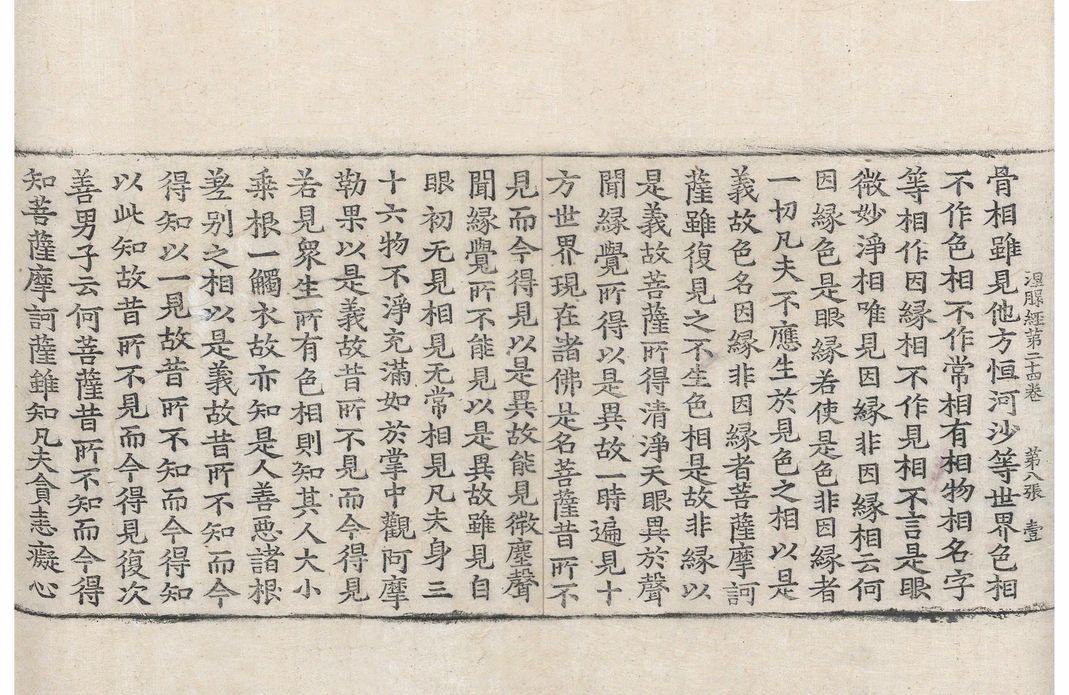 涅槃經第二十四卷 第八張 壹
骨相雖見他方恒河沙等世界色相
不作色相不作常相有相物相名字
等相作因縁相不作見相不言是眼
微妙淨相唯見因縁非因縁相云何
因縁色是眼縁若使是色非因縁者
一切凡夫不應生於見色之相以是
義故色名因縁非因縁者菩薩摩訶
薩雖復見之不生色相是故非縁以
是義故菩薩所得清淨天眼異於聲
聞縁覺所得以是異故一時遍見十
方世界現在諸佛是名菩薩昔所不
見而今得見以是異故能見微塵聲
聞縁覺所不能見以是異故雖見自
眼初无見相見无常相見凡夫身三
十六物不淨充滿如於掌中觀阿摩
勒果以是義故昔所不見而今得見
若見眾生所有色相則知其人大小
乘根一觸衣故亦知是人善惡諸根
差别之相以是義故昔所不知而今
得知以一見故昔所不知而今得知
以此知故昔所不見而今得見復次
善男子云何菩薩昔所不知而今得
知菩薩摩訶薩雖知凡夫貪恚癡心